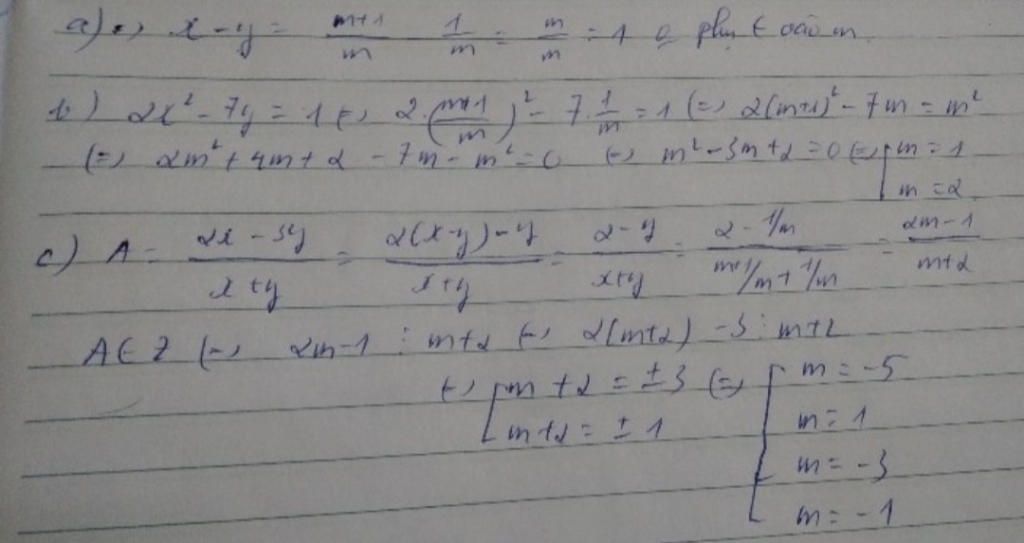 a) => x - y = m+1/m 1/m = m/m = 1 o phụ t vào m
b) 2x² - 7y = 1 <=> 2.(m+1/m)² - 7.1/m = 1 <=> 2(m+1)² - 7m = m²
<=> 2m² + 4m + 2 - 7m - m² = 0 <=> m² - 3m + 2 = 0 <=> [m = 1
m = 2
c) A = 2x - 3y/x + y = 2(x-y) - y/x + y = 2 - y/x+y = 2 - 1/m / m+1/m + 1/m = 2m - 1/m+2
A ∈ Z <=> 2m-1 ⋮ m+2 <=> 2(m+2) - 5 ⋮ m+2
<=> [m + 2 = ± 3 <=> [m = -5
m+2 = ± 1 m = 1
m = -3
m = -1